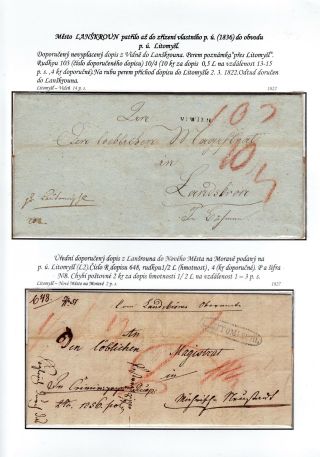 Město LANŠKROUN patřilo až do zřízení vlastního p. ú. (1836) do obvodu
p. ú. Litomyšl.
Doporučený nevyplacený dopis z Vídně do Lanškrouna. Perem poznámka "přes Litomyšl".
Rudkou 103 (číslo doporučeného dopisu) 10/4 (10 kr za dopis 0,5 L na vzdálenost 13-15
p. s. ,4 kr doporučeného). Na rubu perem příchod dopisu do Litomyšle 2. 3. 1822.Odtud doručen
do Lanškrouna.
Litomyšl – Vídeň 14 p. s. 1822
V. WIEN
103
Den
Den loeblichen Magistrat
10/4
in
Landskron
In Böhmen
Úřední doporučený dopis z Lanšrouna do Nového Města na Moravě podaný na
p. ú. Litomyšl (L2).Číslo R dopisu 648, rudkou1/2 L (hmotnost), 4 (kr doporučné). P a šifra
N8. Chybí poštovné 2 kr za dopis hmotnosti 1/ 2 L na vzdálenost 1 – 3 p. s.
Litomyšl – Nové Město na Moravě 2 p. s. 1827
648
Vom Landskroner Oberamte
An
Den löblichen Magistrat
in
In Criminal
Mährisch Neustadt